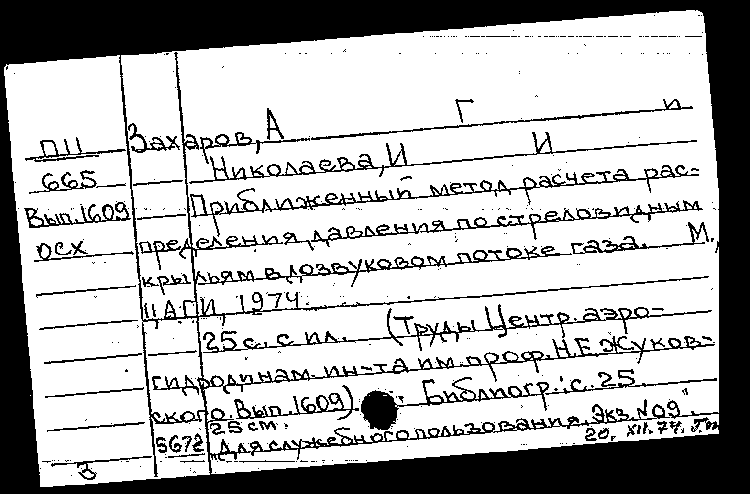 П11 Захаров, А Г и
665 Николаева, И И
Вып.1609 Приближенный метод расчета рас-
осх пределения давления по стреловидным
крыльям в дозвуковом потоке газа. М.,
ЦАГИ, 1974.
25 с. с ил. (Труды Центр. аэро-
гидродинам. ин-та им. проф. Н.Е. Жуков-
ского. Вып. 1609) . Библиогр.: с. 25.
25 см.
5672 "Для служебного пользования". Экз. № 09".
3 20. XII. 74.